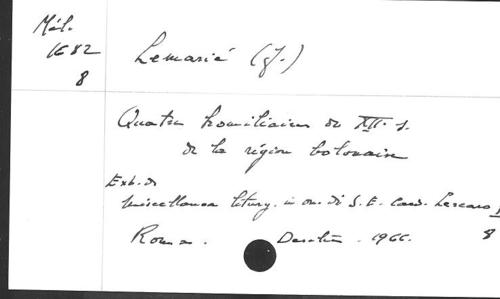 Mél.
1682
8
Lemarié (J.)
Quatre homiliaires du XII. s.
de la région bolonaise
Extr. de
Miscellanea liturg. in on. di S. E. Card. Lercaro I
Roma. Desclée. 1966. 8